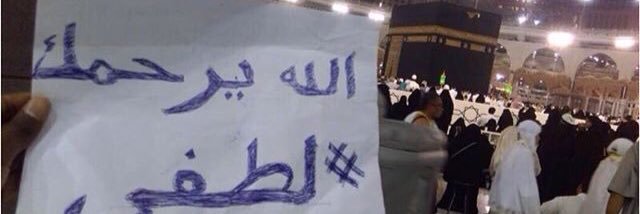 الله يرحمك
#لطفي